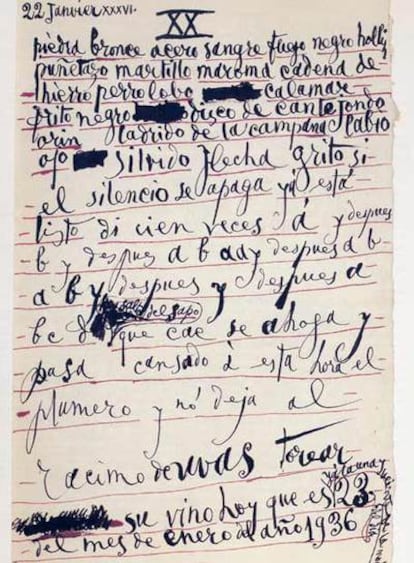 22 Janvier XXXVI.
XX
piedra bronce acero sangre fuego negro
puñetazo martillo maxoma cadena de
hierro perro lobo calamar
grito negro disco de cante jondo
orin ladrido de la campana labio
ojo silvido flecha grito si
el silencio se apaga y á está
listo di cien veces á y despues
b y despues a b a a y despues a b
a b y despues y despues a
b c d del sapo
que cae se ahoga y
pasa cansado á esta hora el
plumero y nó deja al
racimo de uvas torear
su vino hoy que es 23
del mes de enero al año 1936